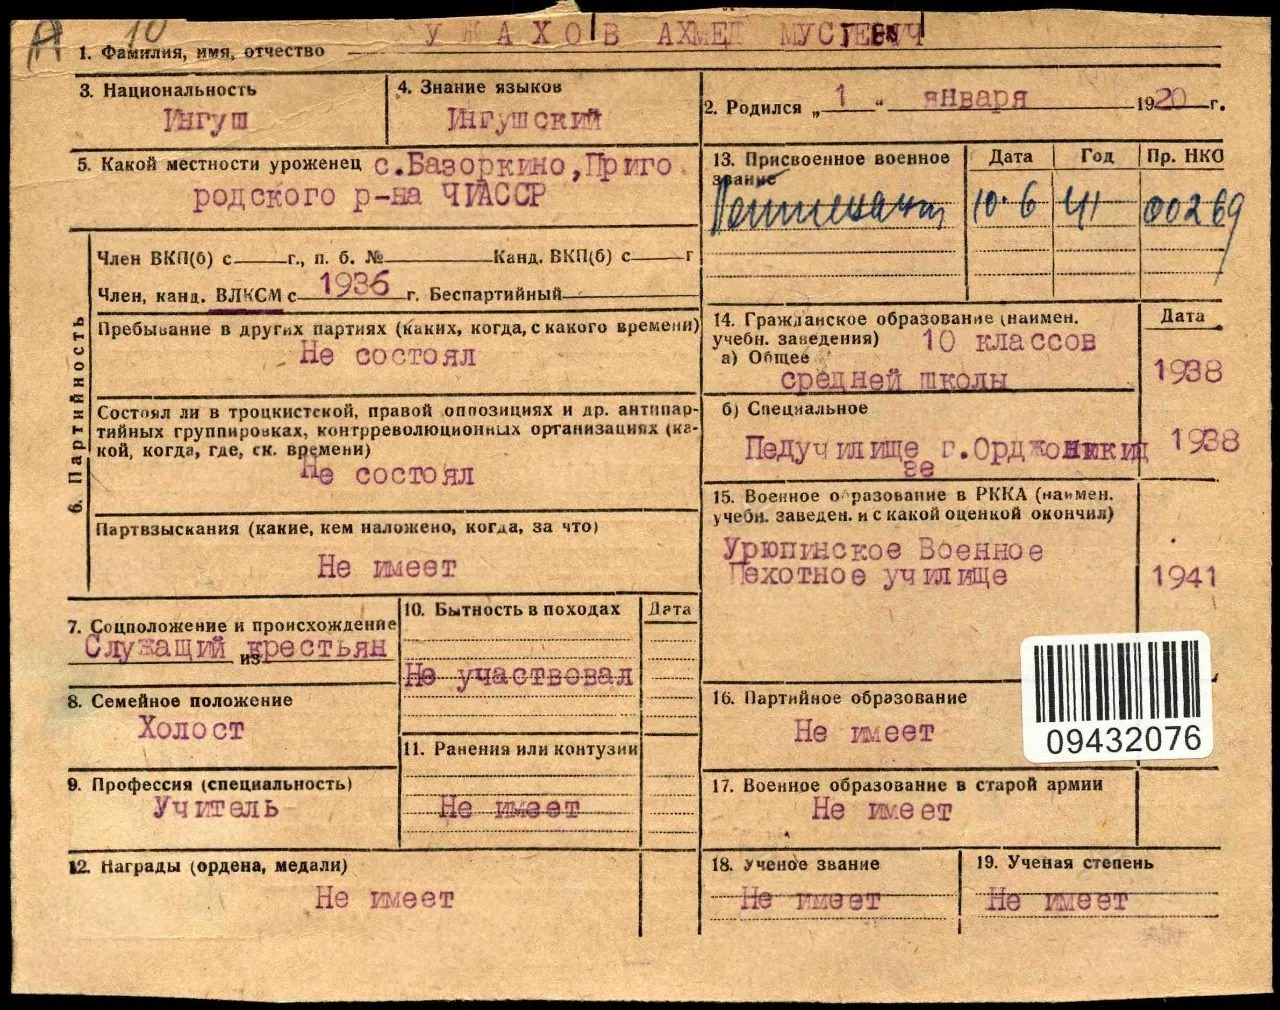 А 10
УЖАХОВ АХМЕД МУСИЕВИЧ
1. Фамилия, имя, отчество
3. Национальность
Ингуш
4. Знание языков
Ингушский
2. Родился „ 1 “ января 1920 г.
5. Какой местности уроженец с.Базоркино,Приго
родского р-на ЧИАССР
13. Присвоенное военное
звание
Дата
Год
Пр. НКО
Лейтенант
10·6
41
00269
6. Партийность
Член ВКП(б) с г., п. б. № Канд. ВКП(б) с г
Член, канд. ВЛКСМ с 1936 г. Беспартийный
Пребывание в других партиях (каких, когда, с какого времени)
Не состоял
Состоял ли в троцкистской, правой оппозициях и др. антипар-
тийных группировках, контрреволюционных организациях (ка-
кой, когда, где, ск. времени)
Не состоял
Партвзыскания (какие, кем наложено, когда, за что)
Не имеет
14. Гражданское образование (наимен.
учебн. заведения) 10 классов
а) Общее
средней школы
Дата
1938
б) Специальное
Педучилище г.Орджоникид
зе
1938
15. Военное образование в РККА (наимен.
учебн. заведен. и с какой оценкой окончил)
Урюпинское Военное
Пехотное училище
1941
7. Соцположение и происхождение
Служащий из крестьян
8. Семейное положение
Холост
9. Профессия (специальность)
Учитель
10. Бытность в походах
Дата
Не участвовал
11. Ранения или контузии
Не имеет
12. Награды (ордена, медали)
Не имеет
16. Партийное образование
Не имеет
09432076
17. Военное образование в старой армии
Не имеет
18. Ученое звание
Не имеет
19. Ученая степень
Не имеет